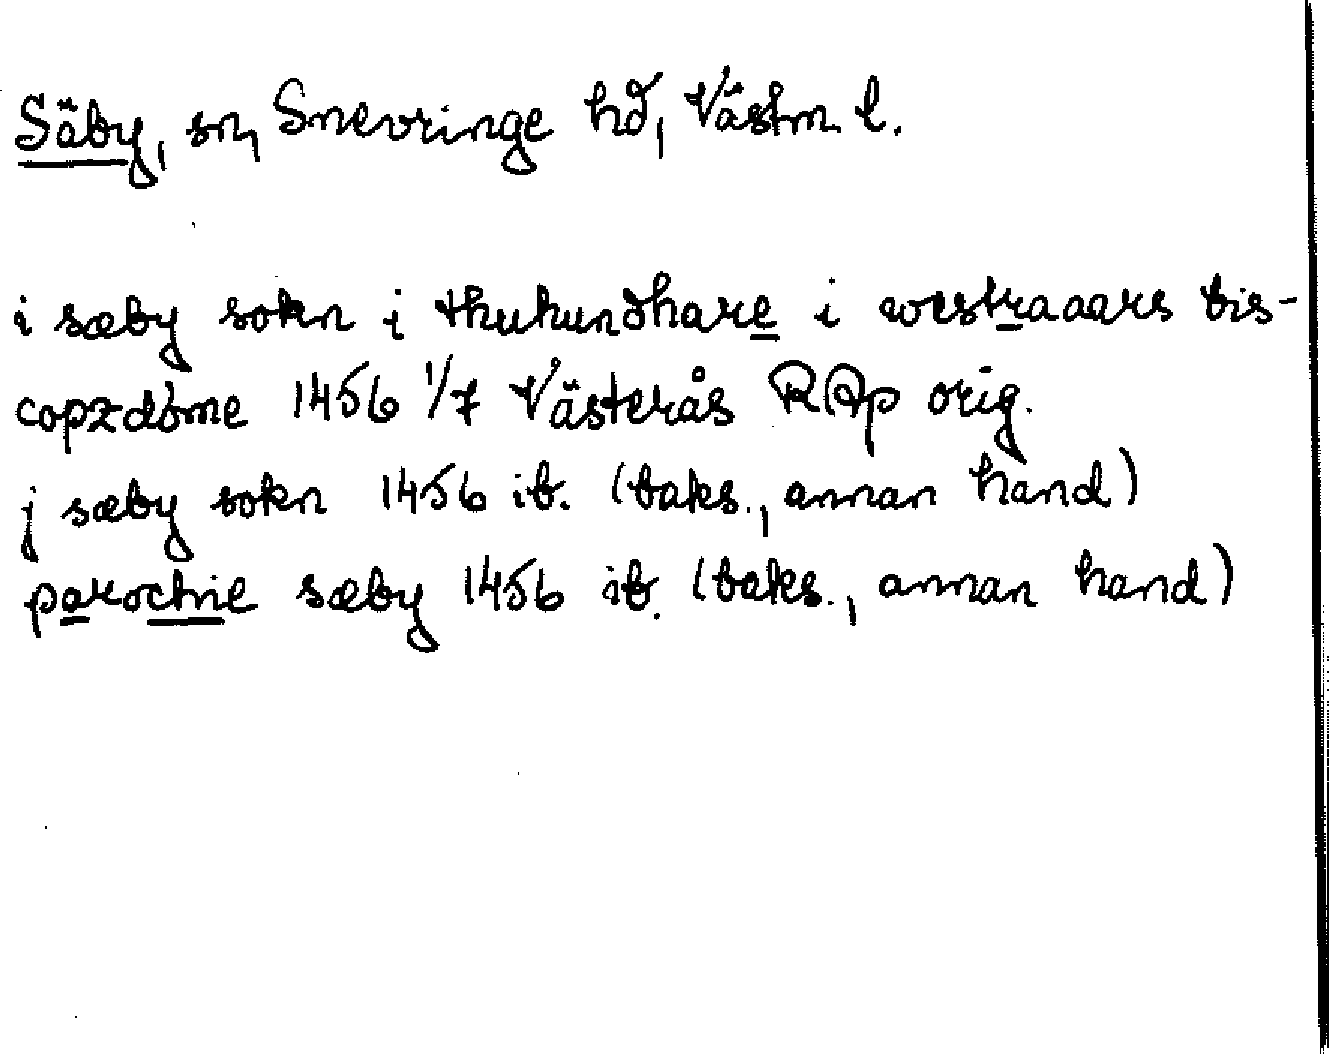 Säby, sn, Snevringe hd, Västm. l.
i sæby sokn i thuhundhare i westraaars bis-
copzdøme 1456 1/7 Västerås RAp orig.
j sæby sokn 1456 ib. (baks., annan hand)
parochie sæby 1456 ib. (baks., annan hand)